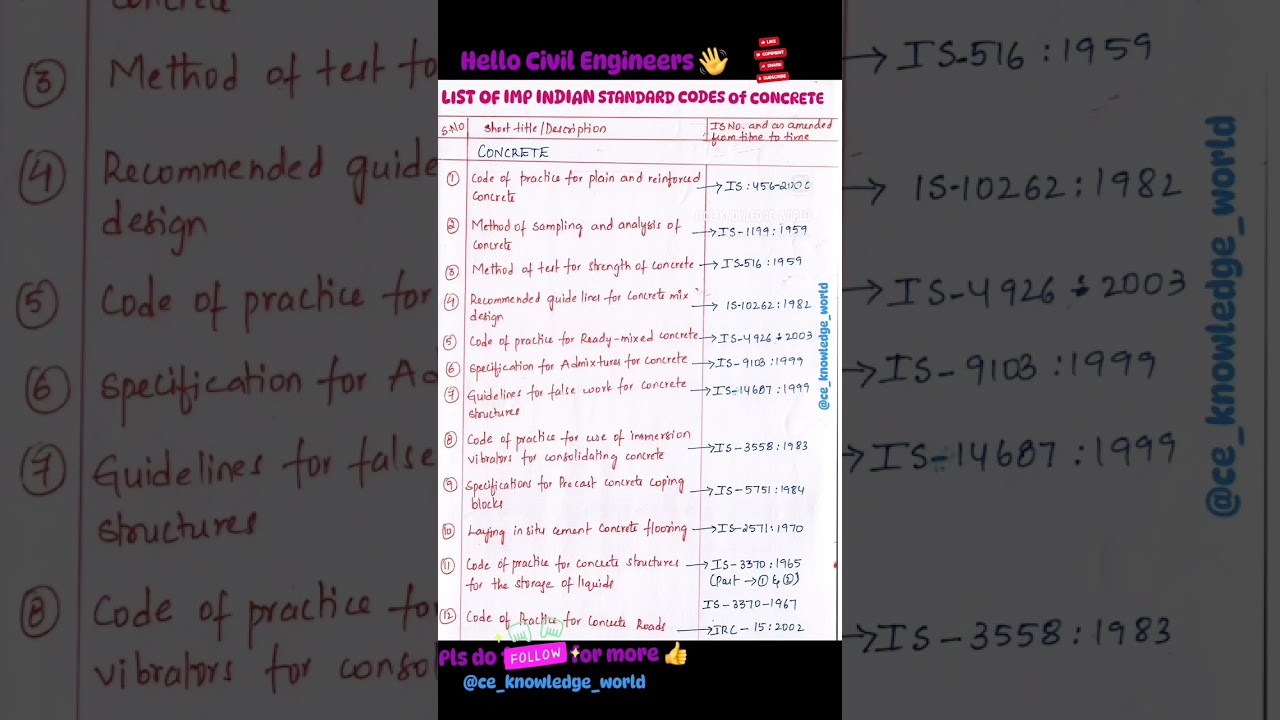 Hello Civil Engineers👋
LIKE
COMMENT
SHARE
SUBSCRIBE
LIST OF IMP INDIAN STANDARD CODES of CONCRETE
S.NO short title/Description IS No. and as amended
from time to time
CONCRETE
① Code of practice for plain and reinforced
concrete → IS: 456-2000
② Method of sampling and analysis of
concrete → IS-1199:1959
③ Method of test for strength of concrete → IS-516:1959
④ Recommended guide lines for concrete mix
design → IS-10262:1982
⑤ Code of practice for Ready-mixed concrete → IS-4926:2003
⑥ specification for Admixtures for concrete → IS-9103:1999
⑦ Guidelines for false work for concrete
structures → IS-14687:1999
⑧ Code of practice for use of immersion
vibrators for consolidating concrete → IS-3558:1983
⑨ Specifications for Precast concrete coping
blocks → IS-5751:1984
⑩ Laying in situ cement concrete flooring → IS-2571:1970
⑪ Code of practice for concrete structures
for the storage of liquids → IS-3370:1965
(Part → ① & ②)
IS-3370-1967
⑫ Code of Practice for Concrete Roads → IRC-15:2002
@ce_knowledge_world
CE KNOWLEDGE WORLD
Pls do FOLLOW for more 👍
@ce_knowledge_world
concrete
③ Method of test fo
④ Recommended guide
design
⑤ Code of practice for
⑥ specification for Ad
⑦ Guidelines for false
structures
⑧ Code of practice fo
vibrators for conso
→ IS-516:1959
→ IS-10262:1982
→ IS-4926:2003
→ IS-9103:1999
→ IS-14687:1999
→ IS-3558:1983
@ce_knowledge_world